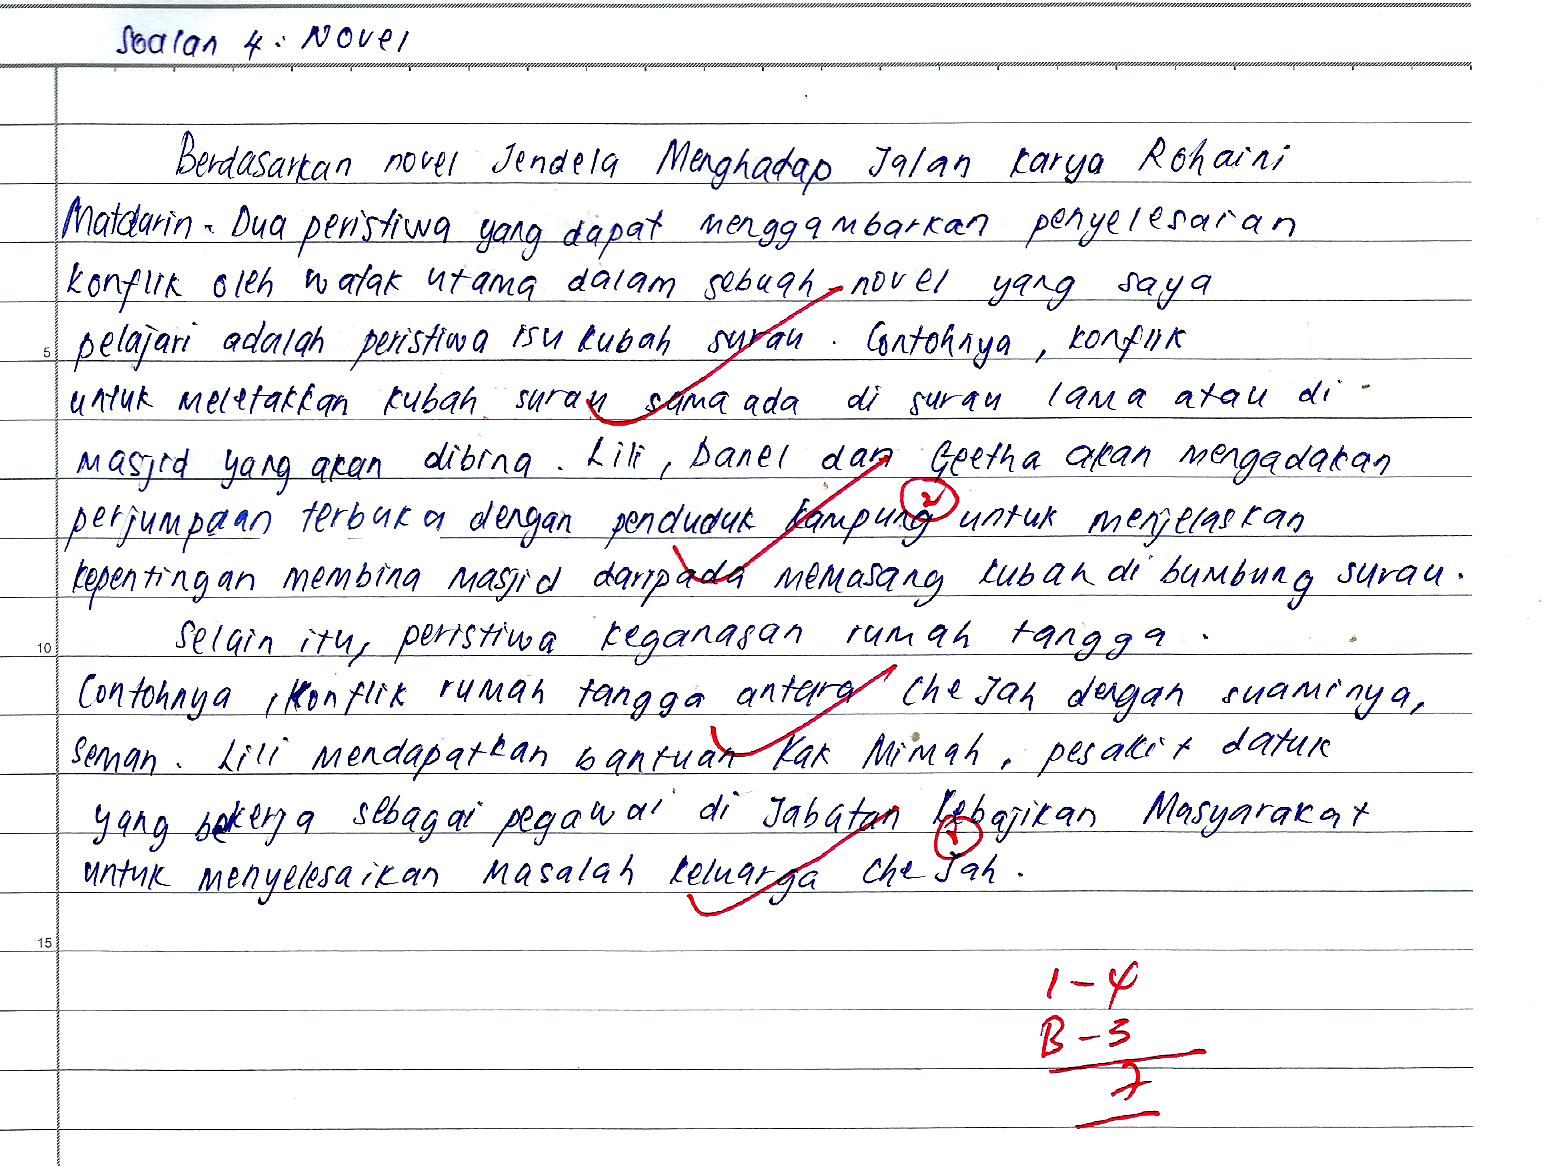 Soalan 4 : Novel
Berdasarkan novel Jendela Menghadap Jalan karya Rohaini
Matdarin. Dua peristiwa yang dapat menggambarkan penyelesaian
konflik oleh watak utama dalam sebuah novel yang saya
5 pelajari adalah peristiwa isu kubah surau. Contohnya, konflik
untuk meletakkan kubah surau sama ada di surau lama atau di
masjid yang akan dibina. Lili, Danel dan Geetha akan mengadakan
2
perjumpaan terbuka dengan penduduk kampung untuk menjelaskan
kepentingan membina masjid daripada memasang kubah di bumbung surau.
10 Selain itu, peristiwa keganasan rumah tangga.
Contohnya, konflik rumah tangga antara Che Jah dengan suaminya,
Seman. Lili mendapatkan bantuan Kak Mimah, pesakit datuk
yang bekerja sebagai pegawai di Jabatan Kebajikan Masyarakat
untuk menyelesaikan masalah keluarga Che Jah.
15
1 - 4
B - 3
7